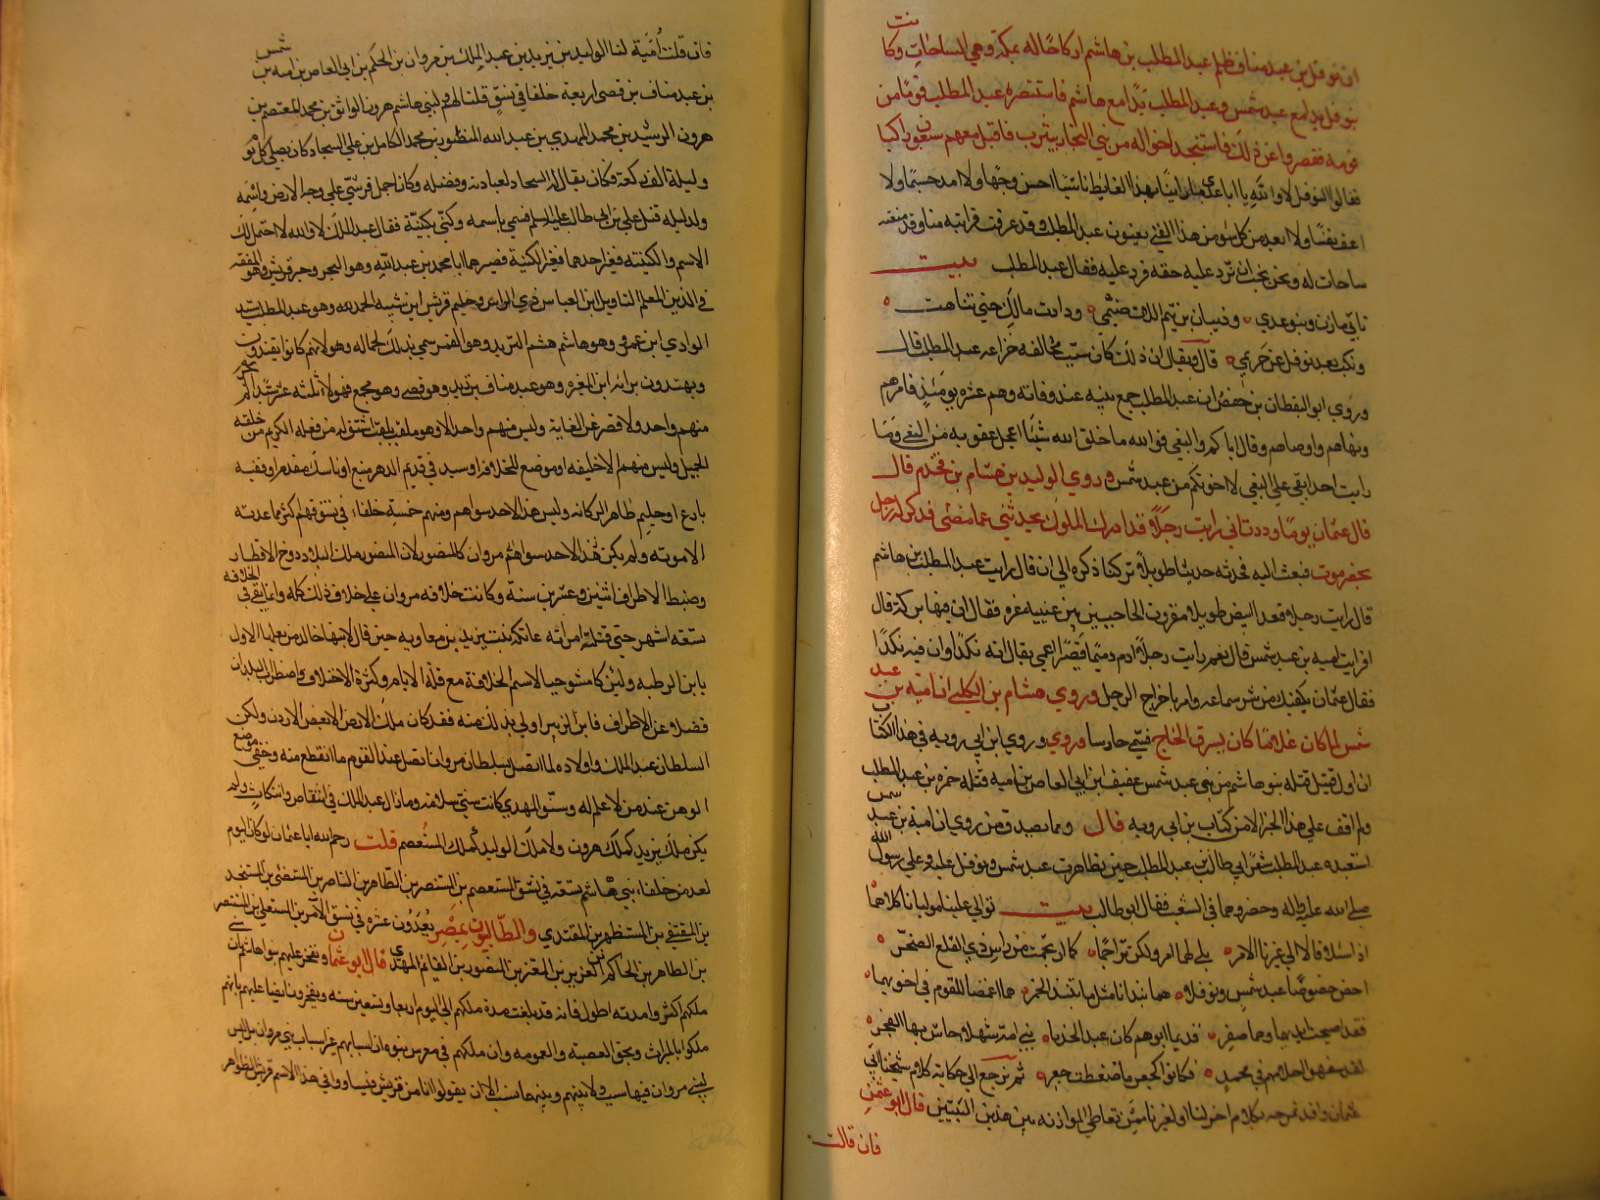 ان نوفل بن عبد مناف ظلم عبد المطلب بن هاشم اركاحا له بمكة وهي الساحات وكا
نت
بنو فل يدا مع عبد شمس وعبد المطلب يدا مع هاشم فاستنصره عبد المطلب قوما من
قومه فقصروا عن ذلك فاستنجد اخواله من بني النجار بيثرب فاقبل معهم سبعون راكبا
فقالوا النوفل لا والله يا ابا عدي ما راينا بهذا الغايط ناشيا احسن وجها ولا امد جسما ولا
اعف نفسا ولا ابعد من كل سوء من هذا الفتى يعنون عبد المطلب وقد عرفت قرابته منا وقد منعته
ساحات له ونحن نحب ان ترد عليه حقه فرد عليه فقال عبد المطلب بيت
تابى مازن وبنو عدي وذبيان بن تيم اللات ضيمي وذادت مالك حتى تناهت
ونكب بعد نوفل عن حريمي قال ويقال ان ذلك كان سبب مخالفه خزاعه عبد المطلب قال
وروي ابو اليقظان بن حفص ان عبد المطلب جمع بنيه عند وفاته وهم عشره يومئذ فامرهم
ونهاهم واوصاهم وقال اياكم والبغي فو الله ما خلق الله شيئا اعجل عقوبه من البغي وما
رايت احدا بقي على البغي الا اخوتكم من عبد شمس وروي الوليد بن هشام بن قحذم قال
قال عثمان يوما وددت اني رايت رجلا قد ادرك الملوك يحدثني عما مضى فذكر له رجل
بحضرموت فبعث اليه فحدثه حديثا طويلا تركنا ذكره الى ان قال رايت عبد المطلب بن هاشم
قال رايت رجلا قعدا ابيض طويلا مقرون الحاجبين بين عينيه غره فقال ان فيها بركة قال
افرايت اميه بن عبد شمس قال نعم رايت رجلا ادم دميما قصيرا اعمى يقال انه نكدا وان فيه نكدا
فقال عثمان يكفيك من شر سماعه وامر باخراج الرجل وروي هشام بن الكلبي ان اميه بن عبد
شمس لما كان غلاما كان يسرق الحاج فسمي حارسا وروي وروي ابن ابي رويه في هذا الكتاب
ان اول قتيل قتله بنو هاشم من بني عبد شمس عفيف ابن ابي العاص بن اميه قتله حمزه بن عبد المطلب
ولم اقف على هذا الخبر الا من كتاب بن ابي رويه قال ومما يصدق من روي ان اميه بن عبد شمس
استعبده عبد المطلب شعر ابي طالب بن عبد المطلب حين تظاهرت عبد شمس ونوفل عليه وعلى رسول الله
صلى الله عليه واله وحضروهما في الشعب فقال ابو طالب بيت توالى علينا موليانا كلاهما
اذا سئلا قالا الى غيرنا الامر بلى لهما امر ولكن تراجما كما ارتجمت من راس ذي القلع الصخر
اخص خصوصا عبد شمس ونوفلا هما نبذانا مثل ما تنبذ الخمر هما اغمضا للقوم في اخويهما
فقد اصبحت ايديهما وهما صفر قديما ابوهم كان عبدا لجدنا بني امة شهلا جاش بها البحر
لقد سفهوا احلامهم في محمد فكانوا كجعر ما ضغطت جعر ثم نرجع الى حكاية كلام شيخنا ابي
عثمان وقد نمزجه بكلام اخر لنا او لغيرنا ممن تعاطى الموازنه بين هذين البيتين قال ابو عثمن
فان قالت
فان قلت امية لنا الوليد بن يزيد بن عبد الملك بن مروان بن الحكم بن ابي العاص بن اميه بن
شمس
بن عبد مناف بن قصي اربعة خلفا في نسق قلنا لهم ولبني هاشم هرون الواثق بن محمد المعتصم بن
هرون الرشيد بن محمد المهدي بن عبد الله المنصور بن محمد الكامل بن علي السجاد كان يصلي كل يوم
وليلة الف ركعة فكان يقال له السجاد لعبادته وفضله وكان اجمل قرشي على وجه الارض واشمه
ولد ليله قتل علي بن ابي طالب عليه السلم فسمي باسمه وكني بكنيته فقال عبد الملك لا والله لا احتمل لك
الاسم والكنيته فغير احدهما فغير الكنية فصيرها ابا محمد بن عبد الله وهو البحر وحبر قريش وهو المفقه
في الدين المعلم التاويل ابن العباس ذي الراي وحليم قريش ابن شيبه الحمد وهو عبد المطلب سيد
الوادي ابن عمرو وهو هاشم هشم الثريد وهو القمر سمي بذلك لجماله وهو لانهم كانوا يقتدون
ويهتدون برايه ابن المغيره وهو عبد مناف بن زيد وهو قصي وهو مجمع فهولاء ثلثه عشر سيدا لم يحرم
منهم واحد ولا قصر عن الغاية وليس منهم واحد الا وهو ملقب بلقب اشتق له من فعله الكريم من خلقه
الجميل وليس منهم الا خليفه او موضع للخلافه او سيد في قديم الدهر منيع او ناسك مقدم او فقيه
بارع او حليم ظاهر الركانه وليس هذا لاحد سواهم ومنهم خمسة خلفاء في نسق فهم اكثر مما عدته
الامويه ولم يكن هذا لاحد سواهم مروان كالمنصور لان المنصور ملك البلاد ودوخ الاقطار
وضبط الاطراف اثنين وعشرين سنة وكانت خلافه مروان على خلاف ذلك كله وانما بقي في الخلافه
تسعه اشهر حتى قتلته امراته عاتكه بنت يزيد بن معاويه حين قال لابنها خالد من بعلها الاول
يا ابن الرطبه ولئن كان مستوجبا لاسم الخلافة مع قلة الايام وكثرة الاختلاف واضطراب البلدان
فضلا عن الاطراف فابن الزبير اولى بذلك منه فقد كان ملك الارض الا بعض الاردن ولكن
السلطان عبد الملك واولاده لما اتصل بسلطان مروان اتصل عند القوم ما انقطع منه وخفي موضع
الوهن عند من لا علم له وسنو المهدي كانت سني سلامة وما زال عبد الملك في انتقاض وانتكاث ولم
يكن ملك يزيد كملك هرون ولا ملك الوليد كملك المستعصم قلت رحم الله ابا عثمان لو كان اليوم
لعد من خلفاء بني هاشم تسعه في نسق المستعصم بن المستنصر بن الظاهر بن الناصر بن المستضي بن المستنجد
بن المقتفي بن المستظهر بن المقتدي والطالبيون بمصر يعدون عشره في نسق الامر بن المستعلي بن المستنصر
بن الظاهر بن الحاكم بن العزيز بن المعز بن المنصور بن القائم المهدي قال ابو عثمان وتفخر عليهم بنو هاشم بان سني
ملكهم اكثر وامدته اطول فانه قد بلغت مدة ملكهم الى اليوم اربعا وتسعين سنه ويفخرون ايضا عليهم بانهم
ملكوا بالميراث وبحق العصبة والعمومه وان ملكهم في مغرس نبوه وان اسبابهم غير اسباب بني مروان بل ليس
لبني مروان فيها سبب ولا بينهم وبينها نسب الا ان يقولوا انا من قريش فيساووا في هذا الاسم قريش الظواهر